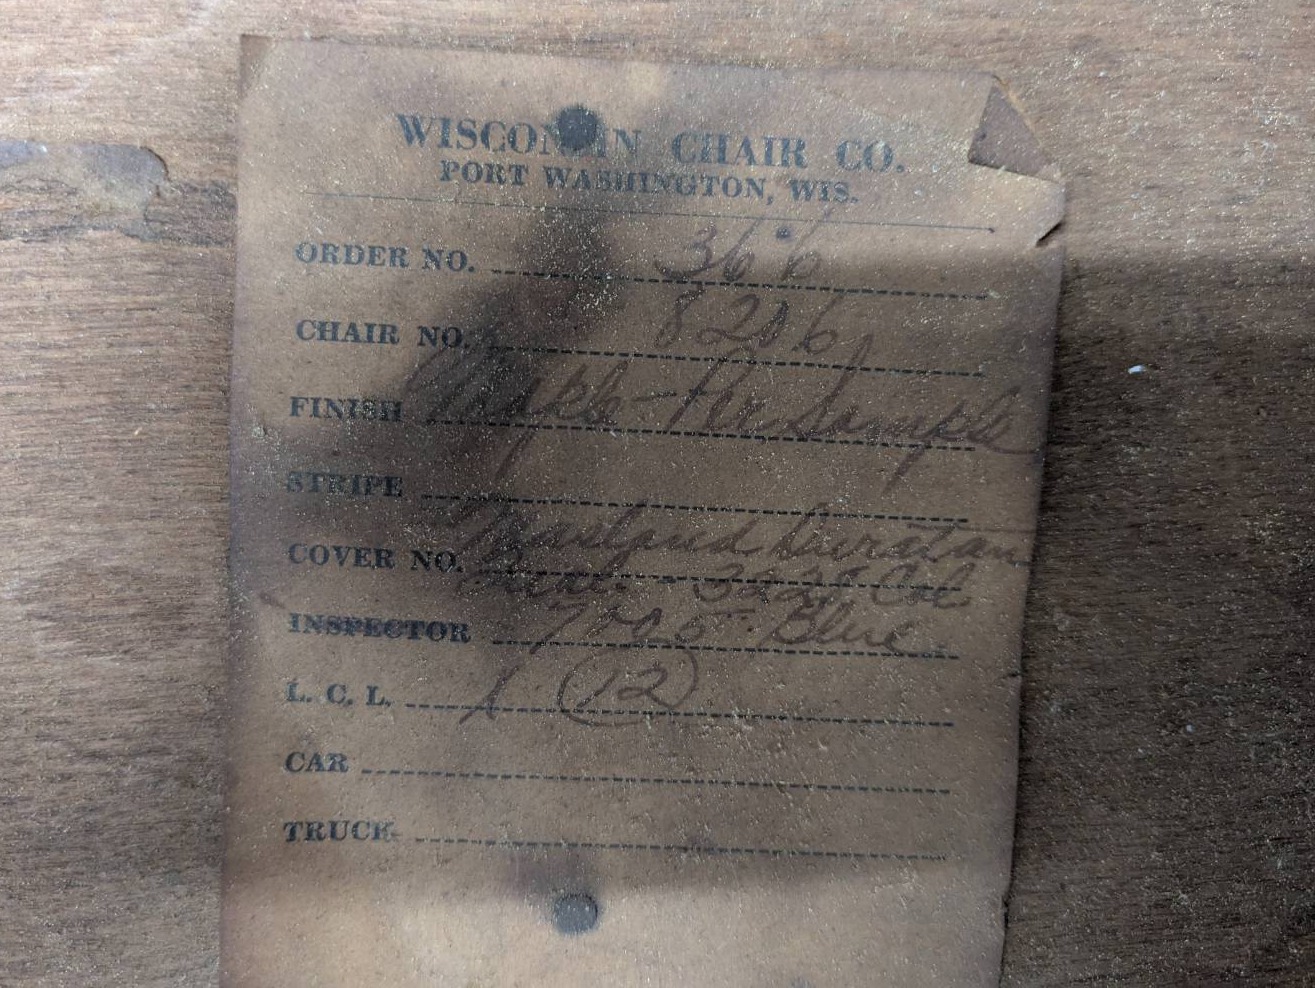 WISCONSIN CHAIR CO.
PORT WASHINGTON, WIS.
ORDER NO. 366
CHAIR NO. 8206
FINISH Maple - Per Sample
STRIPE
COVER NO. Masland Duratan
3225 Col
INSPECTOR 7005 Blue
L. C. L. (12)
CAR
TRUCK